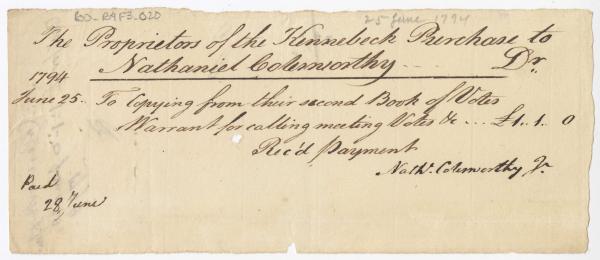 60-R9F3-020
25 June 1794
The Proprietors of the Kennebeck Purchase to
Nathaniel Colesworthy ... Dr.
1794
June 25.. To Copying from their second Book of Votes
Warrant for calling meeting Votes &c ... £1..1..0
Rec'd Payment
Nathl. Colesworthy Jr.
Paid
28 June